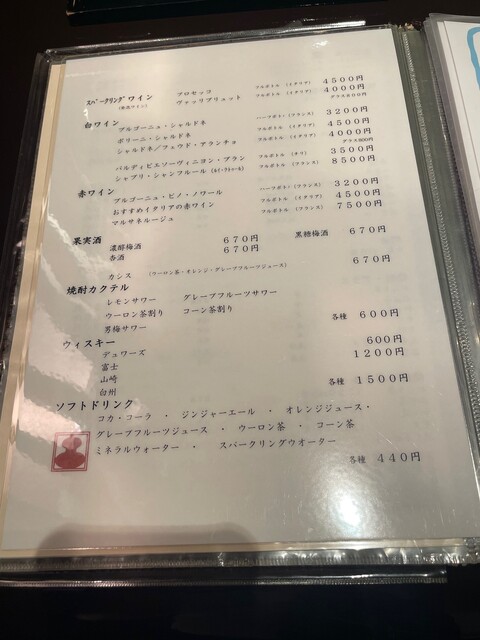 スパークリングワイン プロセッコ フルボトル (イタリア) 4500円
(発泡ワイン) ヴァッリブリュット フルボトル (イタリア) 4000円
グラス800円
白ワイン
ブルゴーニュ・シャルドネ ハーフボトル(フランス) 3200円
ボリーニ・シャルドネ フルボトル (イタリア) 4500円
シャルドネ/フェウド・アランチョ フルボトル (イタリア) 4000円
グラス800円
バルディビエソーヴィニヨン・ブラン フルボトル (チリ) 3500円
シャブリ・シャンフルール フルボトル (フランス) 8500円
赤ワイン
ブルゴーニュ・ピノ・ノワール ハーフボトル(フランス) 3200円
おすすめイタリアの赤ワイン フルボトル (イタリア) 4500円
マルサネルージュ フルボトル (フランス) 7500円
果実酒
濃醇梅酒 670円 黒糖梅酒 670円
杏酒 670円
カシス (ウーロン茶・オレンジ・グレープフルーツジュース) 670円
焼酎カクテル
レモンサワー グレープフルーツサワー
ウーロン茶割り コーン茶割り
男梅サワー 各種 600円
ウィスキー
デュワーズ 600円
富士 1200円
山崎
白州 各種 1500円
ソフトドリンク
コカ・コーラ ・ ジンジャーエール ・ オレンジジュース・
グレープフルーツジュース ・ ウーロン茶 ・ コーン茶
ミネラルウォーター ・ スパークリングウオーター
各種 440円